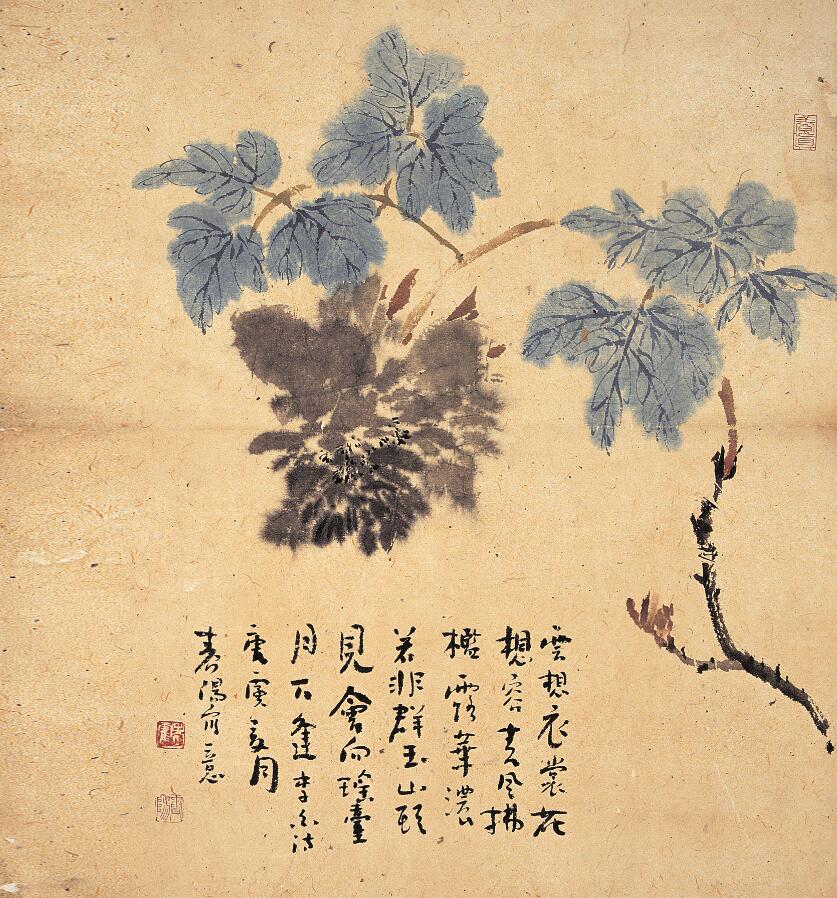 雲想衣裳花
想容春風拂
檻露華濃
若非群玉山頭
見會向瑤臺
月下逢李白詩
庚寅夏月
春陽寫意